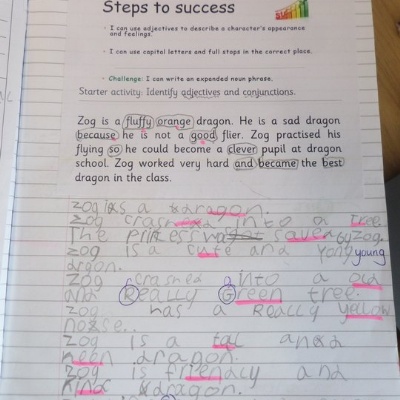 Steps to success
I can use adjectives to describe a character's appearance
and feelings.
I can use capital letters and full stops in the correct place.
Challenge: I can write an expanded noun phrase.
Starter activity: Identify adjectives and conjunctions.
Zog is a fluffy orange dragon. He is a sad dragon
because he is not a good flier. Zog practised his
flying so he could become a clever pupil at dragon
school. Zog worked very hard and became the best
dragon in the class.
Zog is a dragon.
Zog crash into a tree
The saved by Zog.
Zog is a cute and yong young
drgon.
Zog crashed into a old
and Really Green tree.
Zog has a Really yellow
nose..
Zog is a tal and
neen dragon.
Zog is friendly and
Kind dragon.